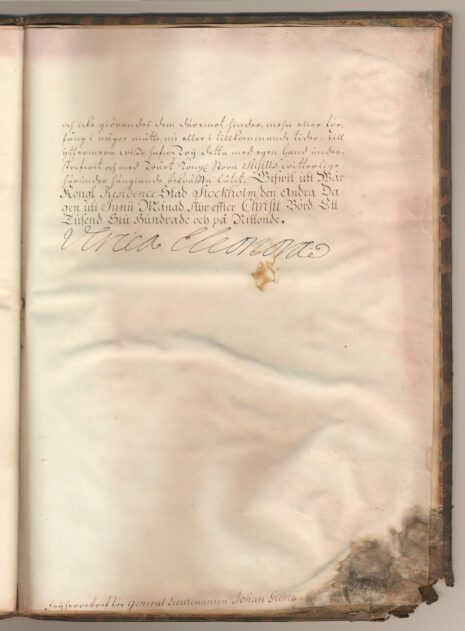 och icke giörandes dem däremot hinder, mehn eller för-
fång i någor måtto, nu eller i tillkommande tider. Till
yttermera wisso hafve Wÿ detta med egen hand under-
skrifvit och med Wårt Kongl. Stora Sigills witterlige
härunder hängande bekräffta låtit. Gifvit uti Wår
Kongl. Residence Stad Stockholm den Andra Da-
gen uti Junii Månad, Åhr effter Christi Börd Ett
Tusend, Siu Hundrade och på Nittonde.
Ulrica Eleonora
för General Lieutenanten Johan